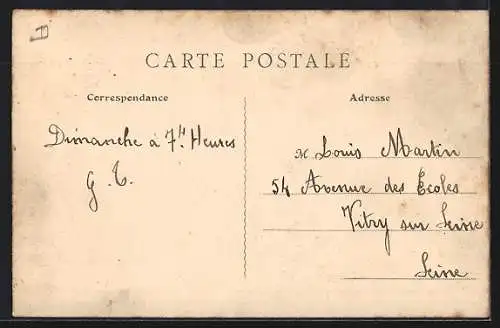 CARTE POSTALE
Correspondance
Dimanche à 7H Heures
G. T.
Adresse
M Louis Martin
54 Avenue des Ecoles
Vitry sur Seine
Seine